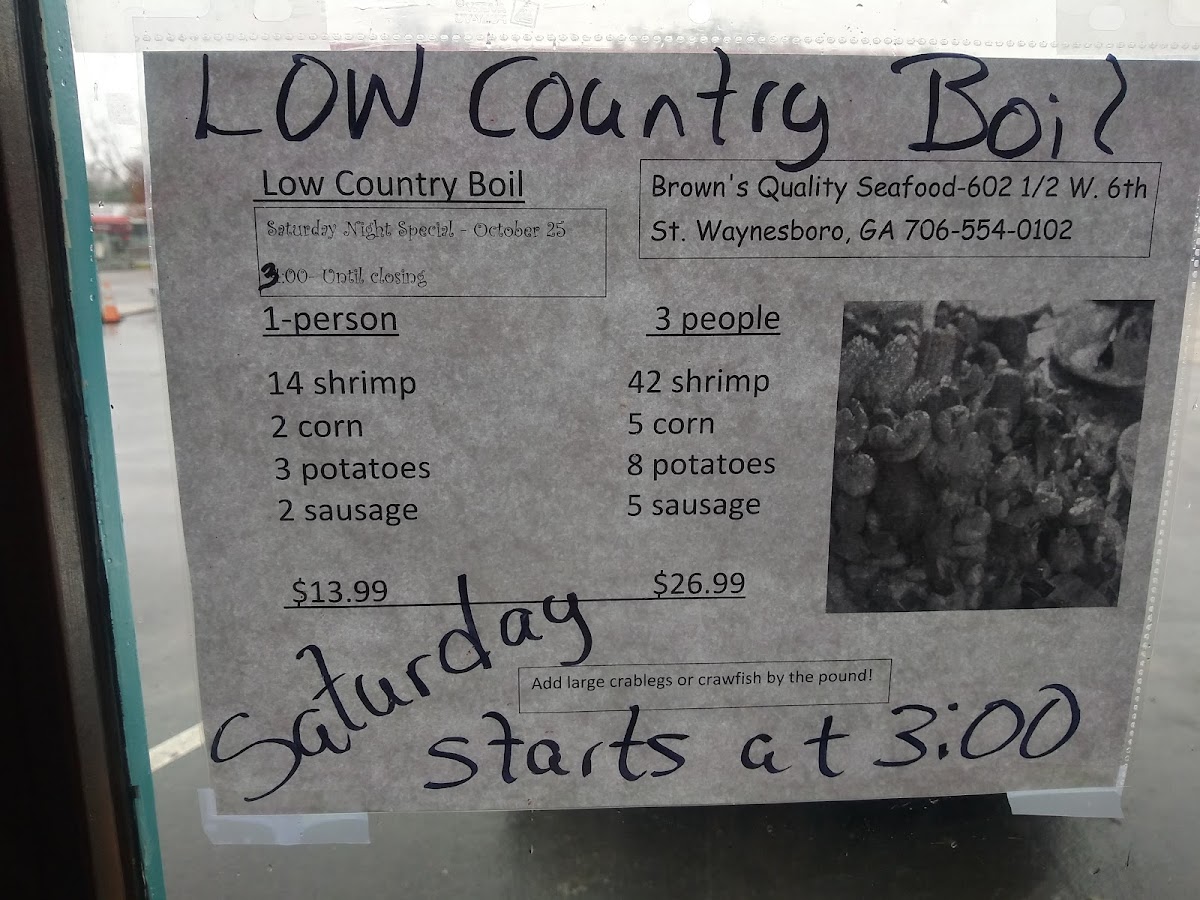 LOW Country Boil
Low Country Boil
Saturday Night Special - October 25
3:00- Until closing
Brown's Quality Seafood-602 1/2 W. 6th
St. Waynesboro, GA 706-554-0102
1-person
14 shrimp
2 corn
3 potatoes
2 sausage
$13.99
3 people
42 shrimp
5 corn
8 potatoes
5 sausage
$26.99
Saturday
Add large crablegs or crawfish by the pound!
starts at 3:00